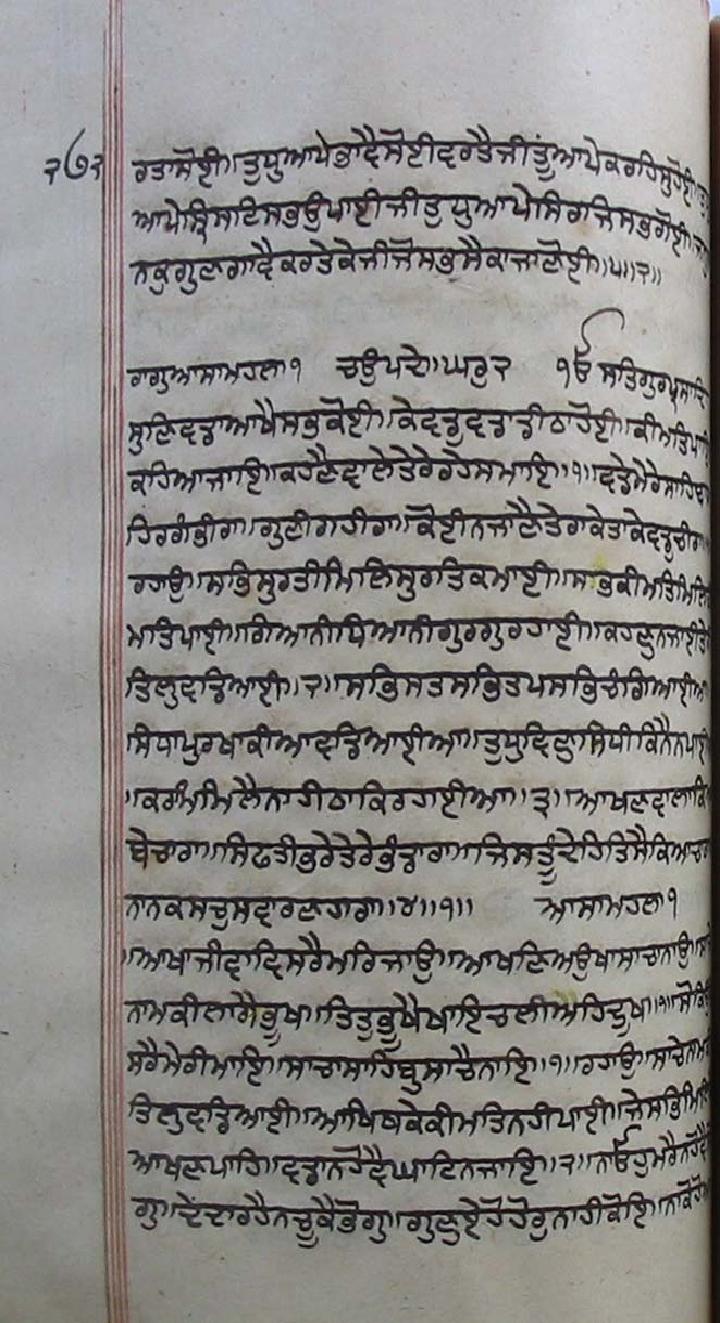 ੨੭੨
ਰਤਾਸੋਈ॥ਤੁਧੁਆਪੇਭਾਵੈਸੋਈਵਰਤੈਜੀਤੂੰਆਪੇਕਰਹਿਸੁਹੋਈ॥
ਆਪੇਸ੍ਰਿਸਟਿਸਭਉਪਾਈਜੀਤੁਧੁਆਪੇਸਿਰਜਿਸਭਗੋਈ॥
ਨਕੁਗੁਣਗਾਵੈਕਰਤੇਕੇਜੀਜੋਸਭਸੈਕਾਜਾਣੋਈ॥੫॥੨॥
ਰਾਗੁਆਸਾਮਹਲਾ੧ ਚਉਪਦੇ॥ਘਰੁ੨ ੴ ਸਤਿਗੁਰਪ੍ਰਸਾਦਿ
ਸੁਣਿਵਡਾਆਖੈਸਭੁਕੋਈ॥ਕੇਵਡੁਵਡਾਡੀਠਾਹੋਈ॥ਕੀਮਤਿਪਾਇ
ਕਹਿਆਜਾਇ॥ਕਹਣੈਵਾਲੇਤੇਰੇਰਹੇਸਮਾਇ॥੧॥ਵਡੇਮੇਰੇਸਾਹਿਬਾ
ਹਿਰਗੰਭੀਰਾ॥ਗੁਣੀਗਹੀਰਾ॥ਕੋਈਨਜਾਣੈਤੇਰਾਕੇਤਾਕੇਵਡੁਚੀਰਾ॥
ਰਹਾਉ॥ਸਭਿਸੁਰਤੀਮਿਲਿਸੁਰਤਿਕਮਾਈ॥ਸਭਕੀਮਤਿਮਿਲਿ
ਮਤਿਪਾਈ॥ਗਿਆਨੀਧਿਆਨੀਗੁਰਗੁਰਹਾਈ॥ਕਹਣੁਨਜਾਈਤੇ
ਤਿਲੁਵਡਿਆਈ॥੨॥ਸਭਿਸਤਸਭਿਤਪਸਭਿਚੰਗਿਆਈਆ
ਸਿਧਾਪੁਰਖਾਕੀਆਵਡਿਆਈਆ॥ਤੁਧੁਵਿਣੁਸਿਧੀਕਿਨੈਨਪਾਈ
॥ਕਰਮਿਮਿਲੈਨਾਹੀਠਾਕਿਰਹਾਈਆ॥੩॥ਆਖਣਵਾਲਾਕਿ
ਬੇਚਾਰਾ॥ਸਿਫਤੀਭਰੇਤੇਰੇਭੰਡਾਰਾ॥ਜਿਸਤੂੰਦੇਹਿਤਿਸੈਕਿਆਚਾਰਾ
ਨਾਨਕਸਚੁਸਵਾਰਣਹਾਰਾ॥੪॥੧॥ ਆਸਾਮਹਲਾ੧
॥ਆਖਾਜੀਵਾਵਿਸਰੈਮਰਿਜਾਉ॥ਆਖਣਿਅਉਖਾਸਾਚਾਨਾਉ॥
ਨਾਮਕੀਲਾਗੈਭੂਖ॥ਤਿਤੁਭੂਖੈਖਾਇਚਲੀਅਹਿਦੂਖ॥੧॥ਸੋਕਿਉ
ਸਰੈਮੇਰੀਮਾਇ॥ਸਾਚਾਸਾਹਿਬੁਸਾਚੈਨਾਇ॥੧॥ਰਹਾਉ॥ਸਾਚੇਨਾਮ
ਤਿਲੁਵਡਿਆਈ॥ਆਖਿਥਕੇਕੀਮਤਿਨਹੀਪਾਈ॥ਜੇਸਭਿਮਿਲਿ
ਆਖਣਪਾਹਿ॥ਵਡਾਨਹੋਵੈਘਾਟਿਨਜਾਇ॥੨॥ਨਾਓਹੁਮਰੈਨਹੋਵੈ
ਗੁ॥ਦੇਂਦਾਰਹੈਨਚੂਕੈਭੋਗੁ॥ਗੁਣੁਏਹੋਹੋਰੁਨਾਹੀਕੋਇ॥ਨਾਕੋਹੋ